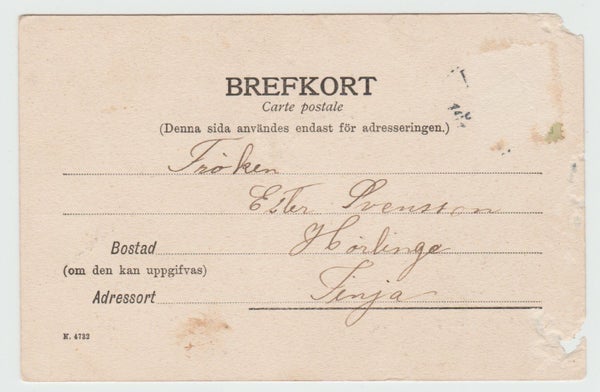 BREFKORT
Carte postale
(Denna sida användes endast för adresseringen.)
Fröken
Ester Svensson
Bostad Hörlinge
(om den kan uppgifvas)
Adressort Finja
N. 4732